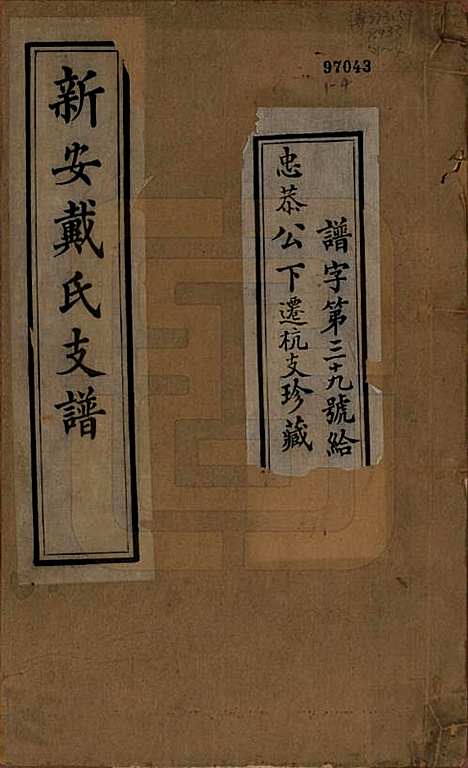 97043
1-4
譜字第三十九號給
忠恭公下遷杭支珍藏
新安戴氏支譜